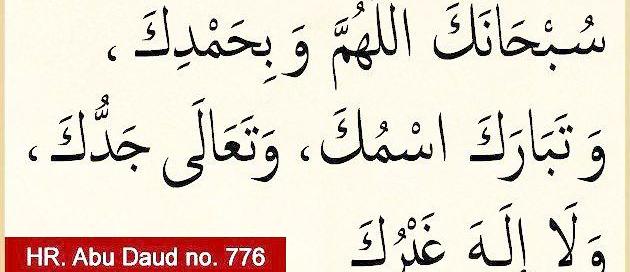 سُبْحَانَكَ اللّٰهُمَّ وَ بِحَمْدِكَ ،
وَ تَبَارَكَ اسْمُكَ، وَتَعَالَى جَدُّكَ،
وَلَا إِلَهَ غَيْرُكَ
HR. Abu Daud no. 776